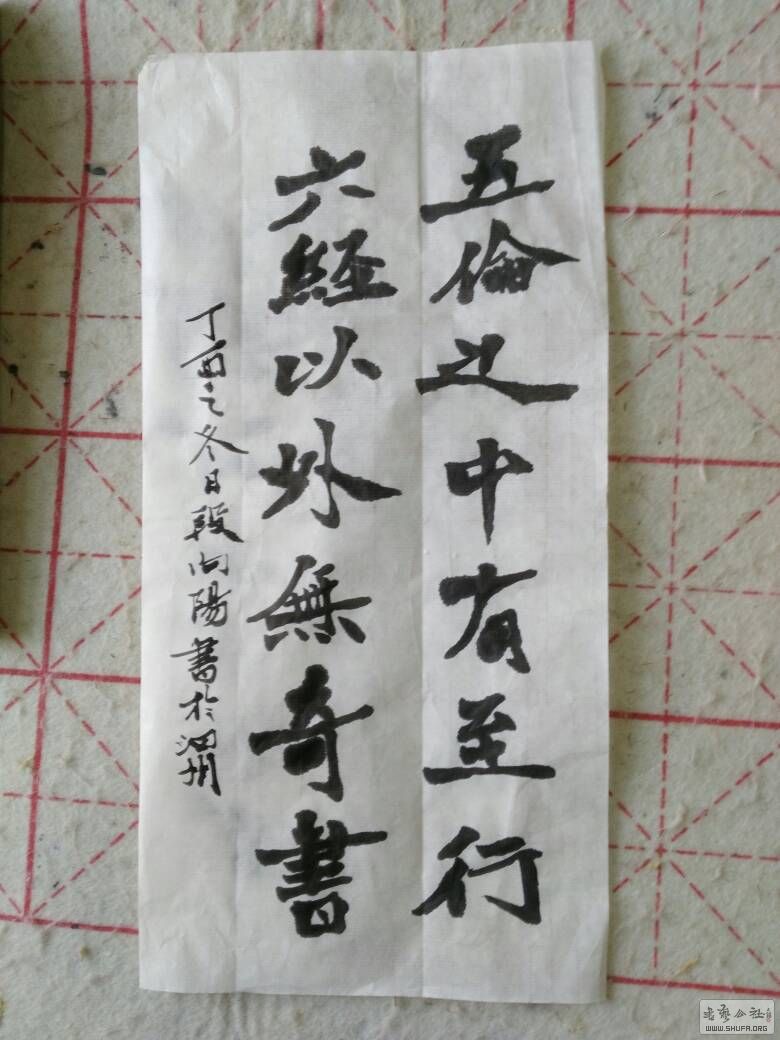 五倫之中有至行
六経以外無奇書
丁酉之冬日段向陽書於泗州
書藝公社
WWW.SHUFA.ORG